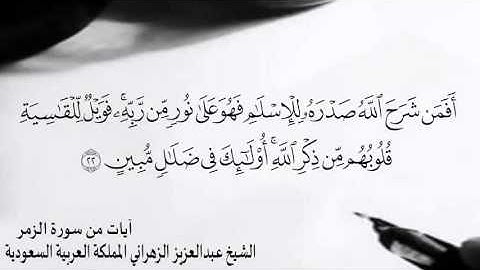 أَفَمَن شَرَحَ ٱللَّهُ صَدْرَهُۥ لِلْإِسْلَٰمِ فَهُوَ عَلَىٰ نُورٍ مِّن رَّبِّهِۦ ۚ فَوَيْلٌ لِّلْقَٰسِيَةِ
قُلُوبُهُم مِّن ذِكْرِ ٱللَّهِ ۚ أُو۟لَٰٓئِكَ فِى ضَلَٰلٍ مُّبِينٍ ﴿٢٢﴾
آيات من سورة الزمر
الشيخ عبدالعزيز الزهراني المملكة العربية السعودية